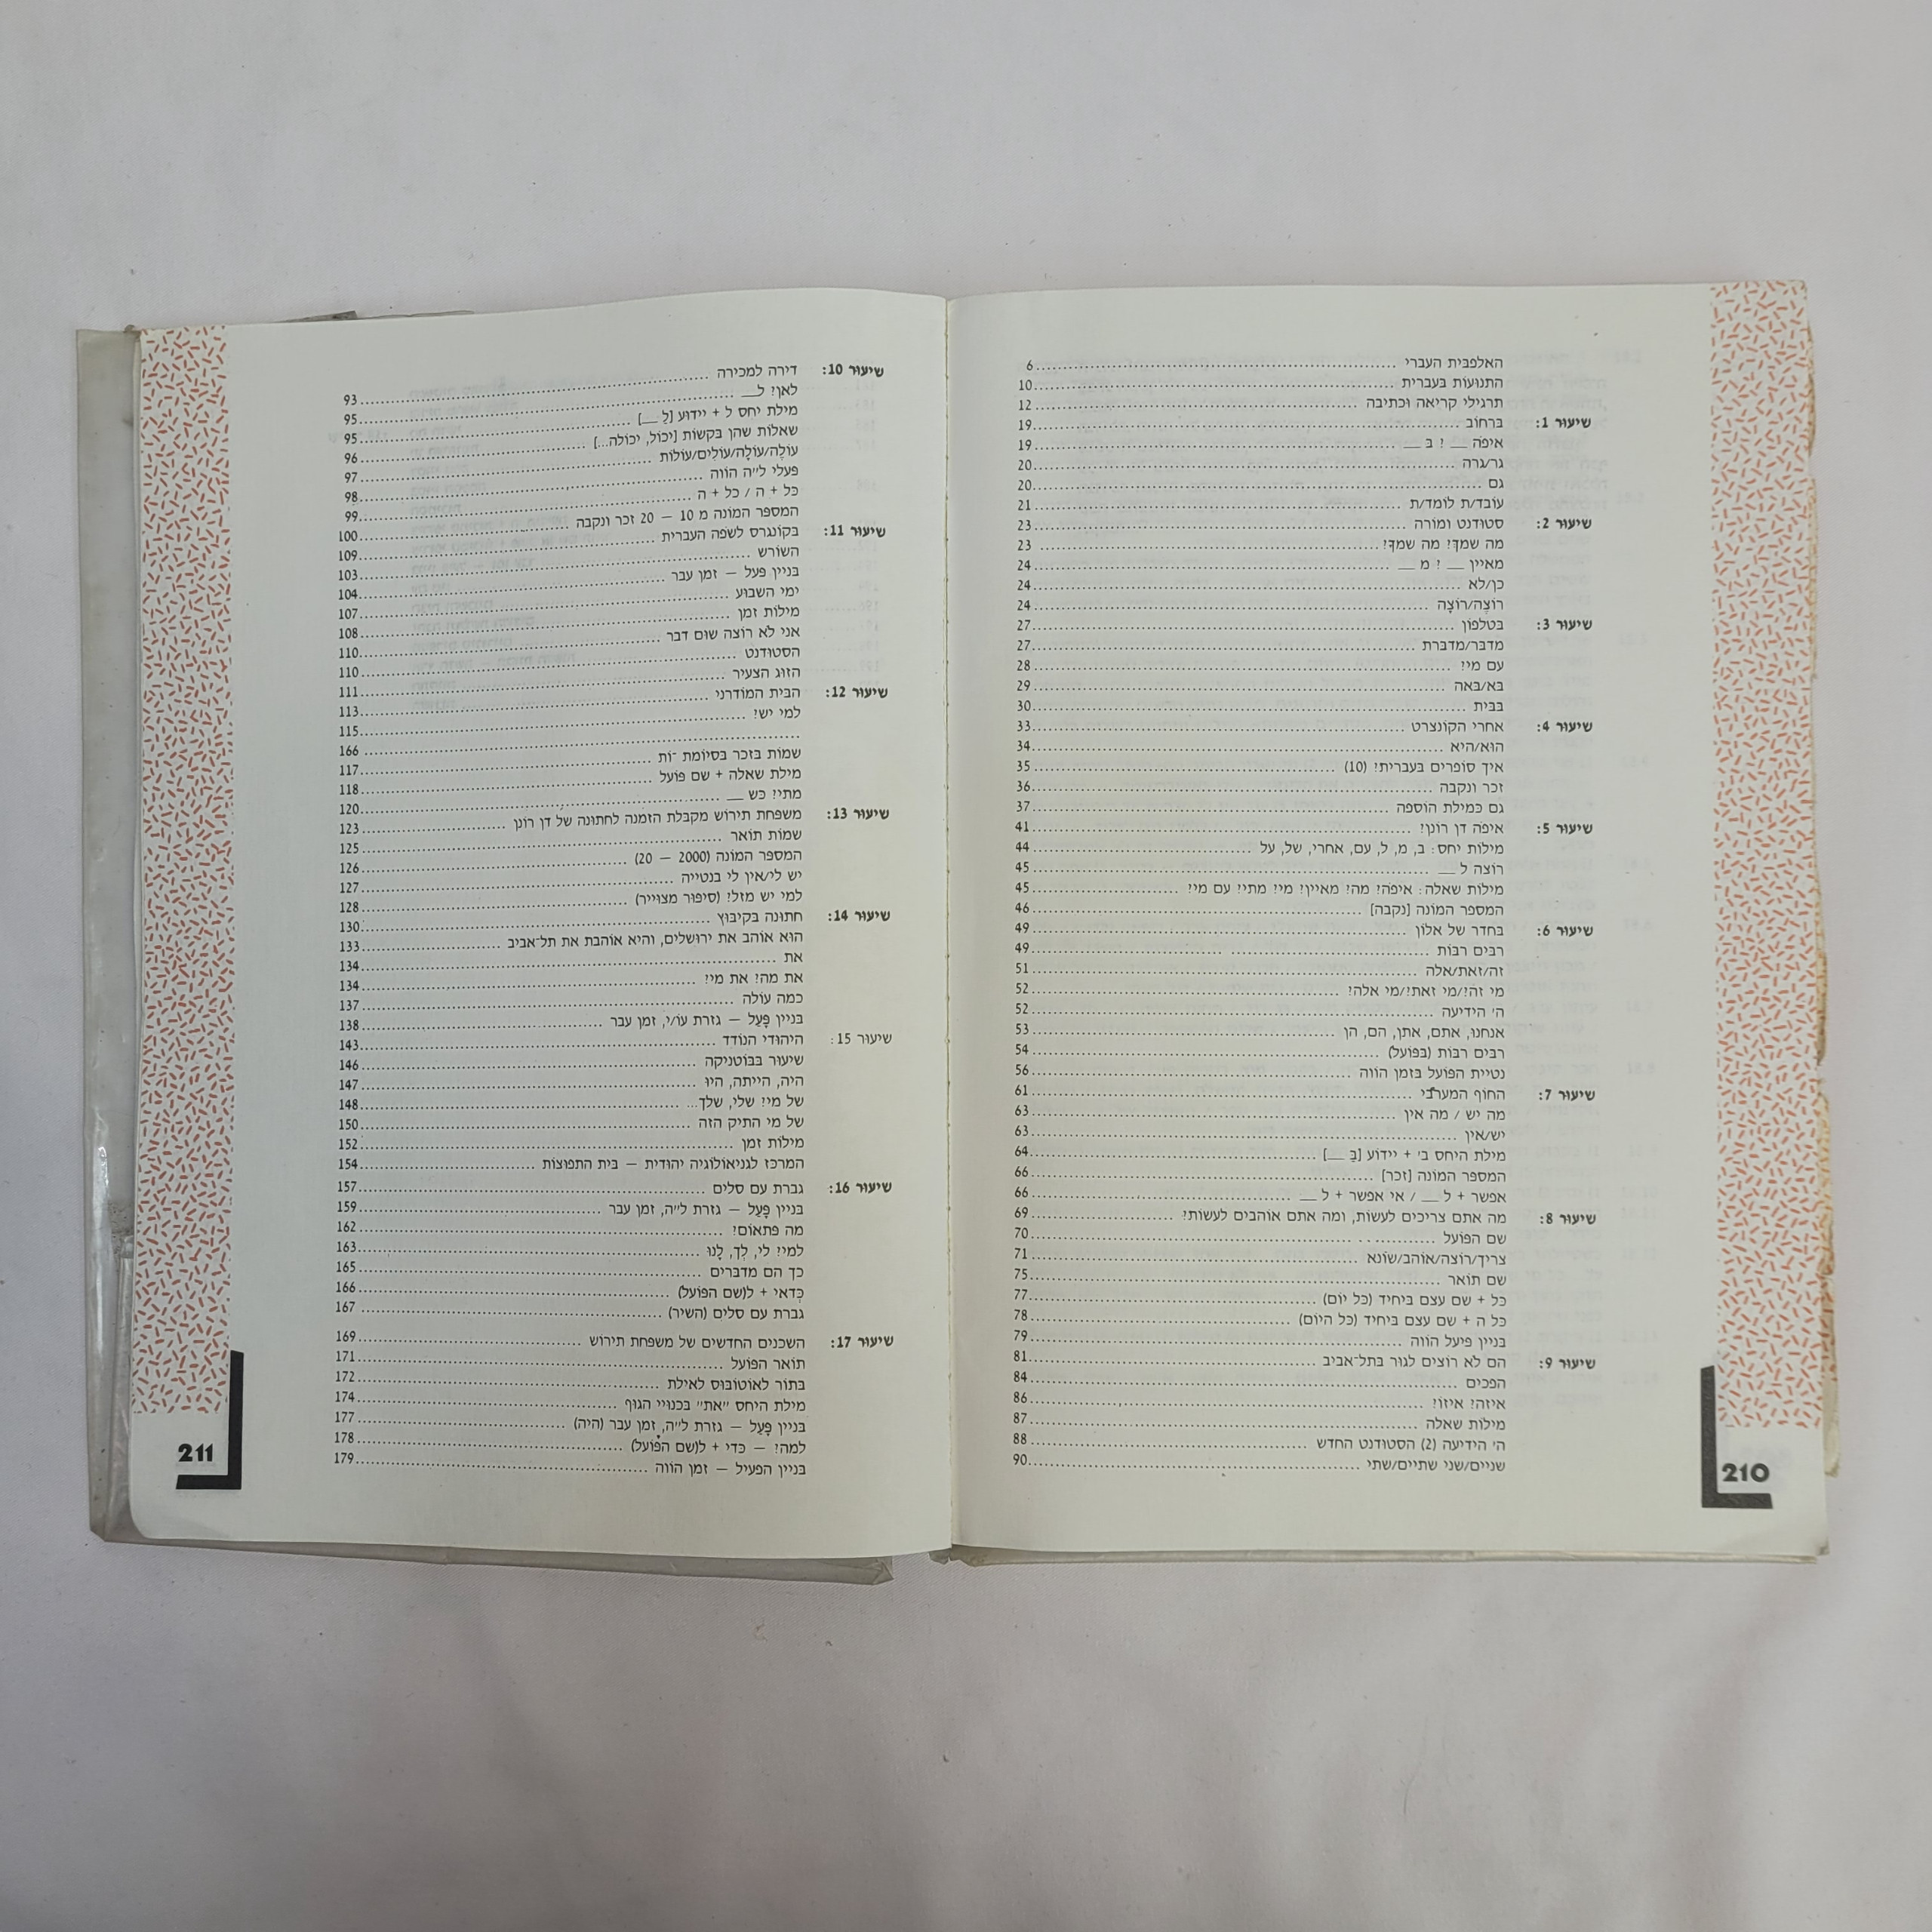 האלפבית העברי ........ 6
התנועות בעברית ........ 10
תרגילי קריאה וכתיבה ........ 12
שיעור 1: ברחוב ........ 19
איפה __ ? ב __ ........ 19
גר/גרה ........ 20
גם ........ 20
עובד/ת לומד/ת ........ 21
שיעור 2: סטודנט ומורה ........ 23
מה שמך? מה שמך? ........ 23
מאיין __ ? מ __ ........ 24
כן/לא ........ 24
רוצֶה/רוצָה ........ 24
שיעור 3: בטלפון ........ 27
מדבר/מדברת ........ 27
עם מי? ........ 28
בא/באה ........ 29
בבית ........ 30
שיעור 4: אחרי הקונצרט ........ 33
הוא/היא ........ 34
איך סופרים בעברית? (10) ........ 35
זכר ונקבה ........ 36
גם כמילת הוספה ........ 37
שיעור 5: איפה דן רונן? ........ 41
מילות יחס: ב, מ, ל, עם, אחרי, של, על ........ 44
רוצה ל __ ........ 45
מילות שאלה: איפה? מה? מאיין? מי? מתי? עם מי? ........ 45
המספר המונה [נקבה] ........ 46
שיעור 6: בחדר של אלון ........ 49
רבים רבות ........ 49
זה/זאת/אלה ........ 51
מי זה?/מי זאת?/מי אלה? ........ 52
ה' הידיעה ........ 52
אנחנו, אתם, אתן, הם, הן ........ 53
רבים רבות (בפועל) ........ 54
נטיית הפועל בזמן הווה ........ 56
שיעור 7: החוף המערבי ........ 61
מה יש / מה אין ........ 63
יש/אין ........ 63
מילת היחס ב' + יידוע [בַּ __] ........ 64
המספר המונה [זכר] ........ 66
אפשר + ל __ / אי אפשר + ל __ ........ 66
שיעור 8: מה אתם צריכים לעשות, ומה אתם אוהבים לעשות? ........ 69
שם הפועל ........ 70
צריך/רוצה/אוהב/שונא ........ 71
שם תואר ........ 75
כל + שם עצם ביחיד (כל יום) ........ 77
כל ה + שם עצם ביחיד (כל היום) ........ 78
בניין פיעל הווה ........ 79
שיעור 9: הם לא רוצים לגור בתל־אביב ........ 81
הפכים ........ 84
איזה? איזו? ........ 86
מילות שאלה ........ 87
ה' הידיעה (2) הסטודנט החדש ........ 88
שניים/שני שתיים/שתי ........ 90
210
שיעור 10: דירה למכירה ........ 93
לאן? ל__ ........ 95
מילת יחס ל + יידוע [לַ __] ........ 95
שאלות שהן בקשות [יכול, יכולה...] ........ 96
עולֶה/עולָה/עולים/עולות ........ 97
פעלי ל״ה הווה ........ 98
כל + ה / כל + ה ........ 99
המספר המונה מ 10 — 20 זכר ונקבה ........ 100
שיעור 11: בקונגרס לשפה העברית ........ 109
השורש ........ 103
בניין פעל — זמן עבר ........ 104
ימי השבוע ........ 107
מילות זמן ........ 108
אני לא רוצה שום דבר ........ 110
הסטודנט ........ 110
הזוג הצעיר ........ 111
שיעור 12: הבית המודרני ........ 113
למי יש? ........ 115
........ 166
שמות בזכר בסיומת ־ות ........ 117
מילת שאלה + שם פועל ........ 118
מתי? כש __ ........ 120
שיעור 13: משפחת תירוש מקבלת הזמנה לחתונה של דן רונן ........ 123
שמות תואר ........ 125
המספר המונה (2000 — 20) ........ 126
יש לי/אין לי בנטייה ........ 127
למי יש מזל? (סיפור מצוייר) ........ 128
שיעור 14: חתונה בקיבוץ ........ 130
הוא אוהב את ירושלים, והיא אוהבת את תל־אביב ........ 133
את ........ 134
את מה? את מי? ........ 134
כמה עולה ........ 137
בניין פָּעַל — גזרת עו/י, זמן עבר ........ 138
שיעור 15: היהודי הנודד ........ 143
שיעור בבוטניקה ........ 146
היה, הייתה, היו ........ 147
של מי? שלי, שלך... ........ 148
של מי התיק הזה ........ 150
מילות זמן ........ 152
המרכז לגניאולוגיה יהודית — בית התפוצות ........ 154
שיעור 16: גברת עם סלים ........ 157
בניין פָּעַל — גזרת ל״ה, זמן עבר ........ 159
מה פתאום? ........ 162
למי? לי, לְךָ, לָנוּ ........ 163
כך הם מדברים ........ 165
כְּדאי + ל(שם הפועל) ........ 166
גברת עם סלים (השיר) ........ 167
שיעור 17: השכנים החדשים של משפחת תירוש ........ 169
תואר הפועל ........ 171
בתור לאוטובוס לאילת ........ 172
מילת היחס ״את״ בכנויי הגוף ........ 174
בניין פָּעַל — גזרת ל״ה, זמן עבר (היה) ........ 177
למה? — כדי + ל(שם הפועל) ........ 178
בניין הפעיל — זמן הווה ........ 179
211